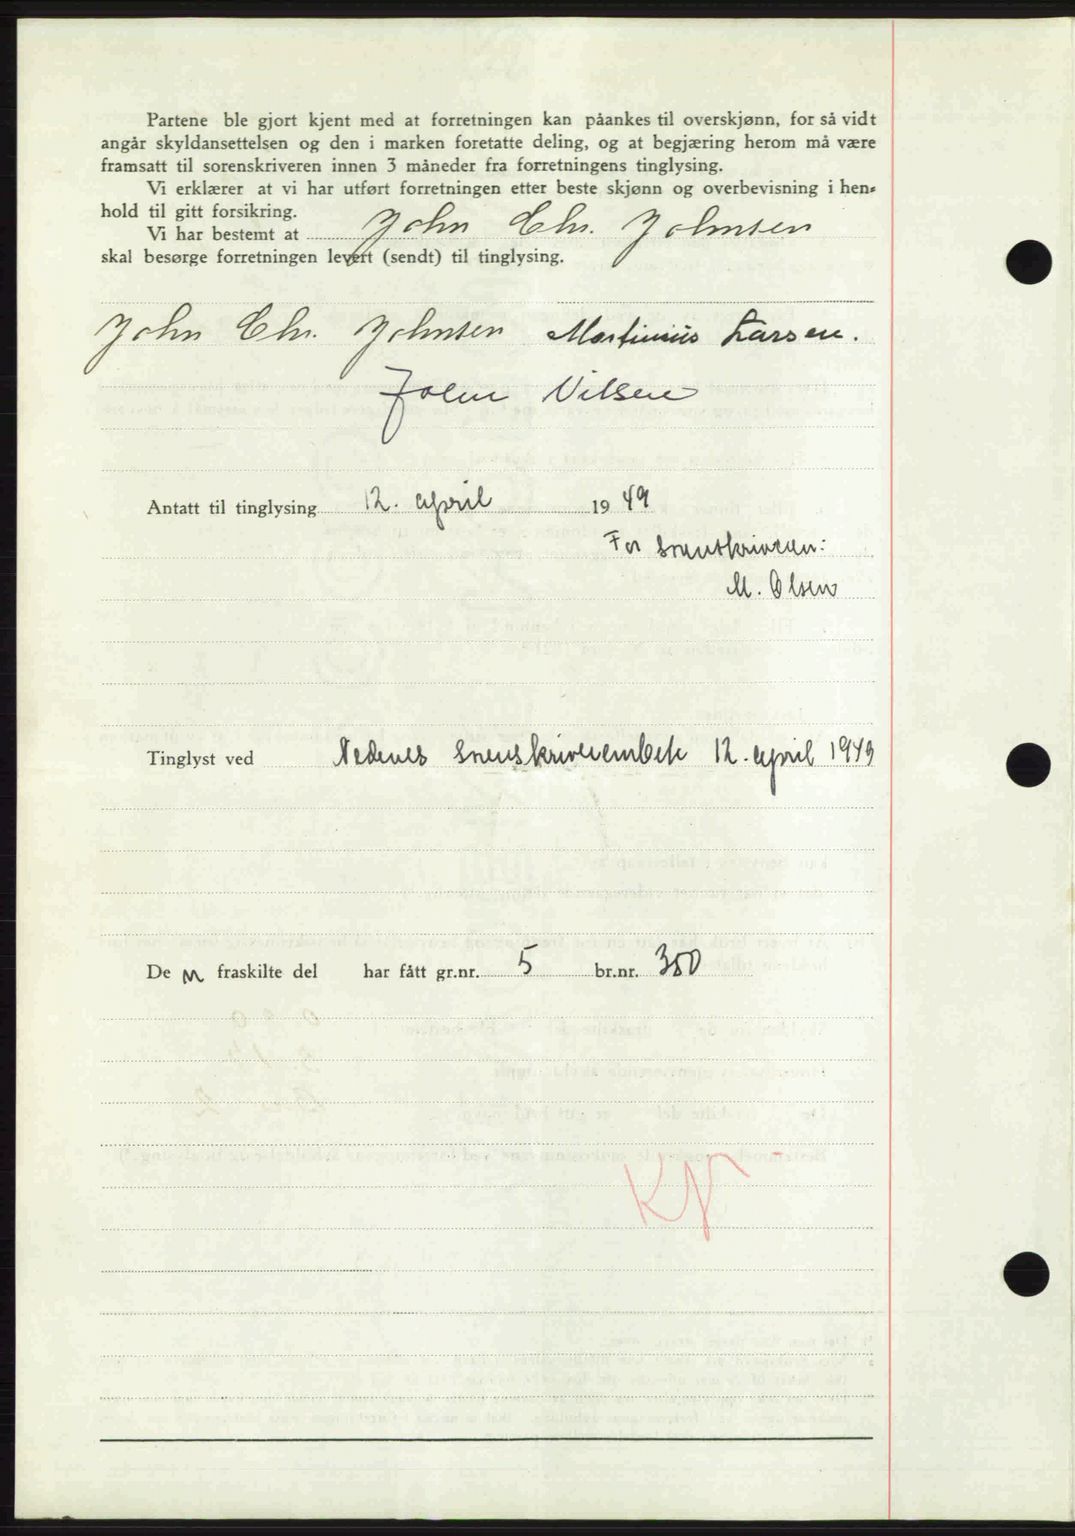 Partene ble gjort kjent med at forretningen kan påankes til overskjønn, for så vidt
angår skyldansettelsen og den i marken foretatte deling, og at begjæring herom må være
framsatt til sorenskriveren innen 3 måneder fra forretningens tinglysing.
Vi erklærer at vi har utført forretningen etter beste skjønn og overbevisning i hen-
hold til gitt forsikring.
Vi har bestemt at John Chr. Johnsen
skal besørge forretningen levert (sendt) til tinglysing.
John Chr. Johnsen Martinius Larsen.
John Nilsen
Antatt til tinglysing 12. april 1949
For sorenskriveren:
M. Olsen
Tinglyst ved Nedenes sorenskriverembete 12. april 1949
De n fraskilte del har fått gr.nr. 5 br.nr. 350